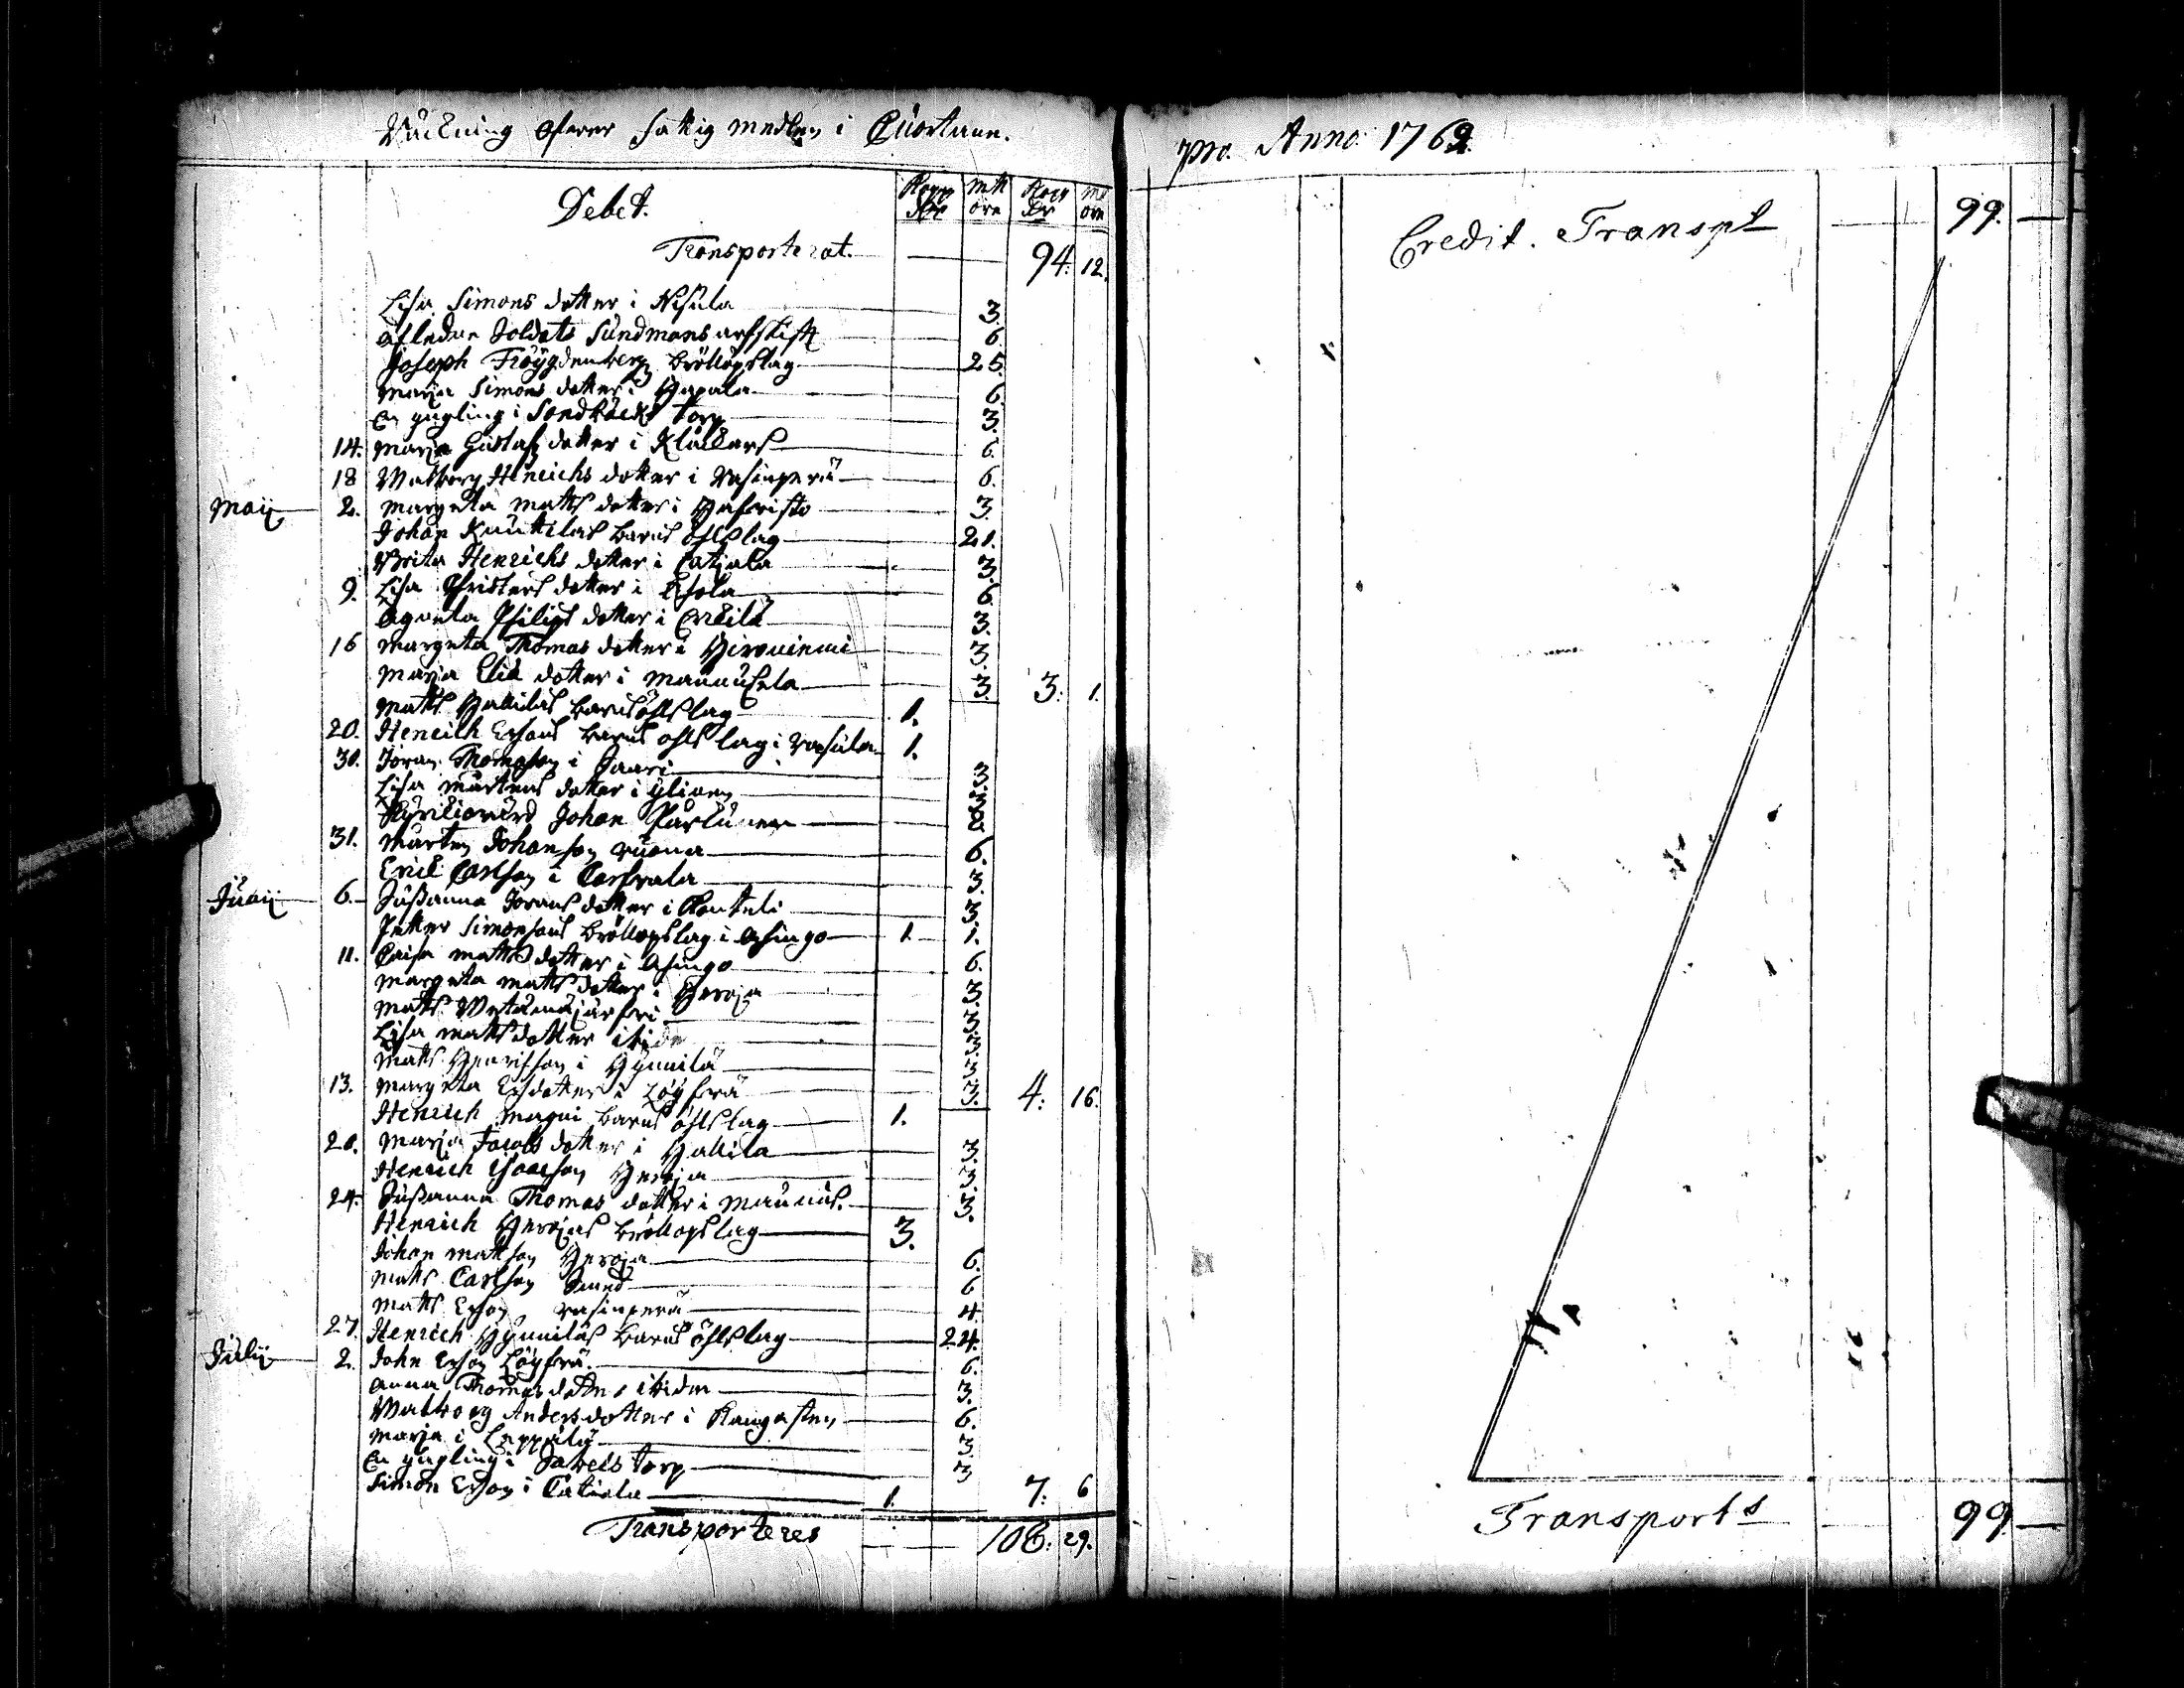 Räckning öfwer fattig medlen i Cuortane.
Debet.
Kopp dlr mtt öre Kopp dlr mt öre
Transporterat. 94: 12.
Lisa Simons dotter i Nisula 3.
afledne Soldats Sundmans arfskift 6.
Joseph Fröÿgdenberg bröllopslag 25.
Marja Simons dotter i Hapala 6.
En yngling i torp 3.
14. Marja Gustafz dotter i Klåckars 6.
18 Walborg Henrichs dotter i Rasinperä 6.
Maij 2. Margeta Matts dotter i 3.
Johan Knuttilas barns öhlslag 21.
Brita Henrichs dotter i Catjala 3.
9. Lisa Christers dotter i 6.
Agneta Philips dotter i Erkilä 3.
16 Margeta Thomas dotter i Hirviniemi 3.
Marja dotter i Mannusela 3. 3: 1.
Matts barns öhlslag 1.
20. Henrich Ersons barns öhls lag i Rasula 1.
30. Jöran Thomason i Saari 3.
Lisa Mårtens dotter i 3.
Johan 8
31. Mårten Johanson Ruona 6.
Eric Carlson i 3.
Junij 6. Susanna Jörans dotter i Konteli 3.
Petter Simonsons bröllopslag i Asingo 1. 1.
11. Caisa Matts dotter i Asingo 6.
Margeta Matts dotter i Heroja 3.
Matts Wetämäjärfwi 3.
Lisa Matts dotter ibide 3.
Matts Henrichson i Hynnilä 3.
13. Margeta Ersdotter i Löÿfwä 3. 4: 16.
Henrich Magni barns öhlslag 1.
20. Marja Jacobs dotter i Hallila 3.
Henrich Isaacson Heroja 3.
24. Susanna Thomas dotter i Maunus. 3.
Henrich Herojas bröllopslag 3.
Johan Mattson Heroja 6.
Matts Carlson Smed 6
Matts Erson Rasinperä 4.
27. Henrich Hynnilas barns öhlslag 24.
Julij 2. John Erson Löÿfwä. 6.
Anna Thomas dotter ibidm 3.
Walborg Anders dotter i Kangasten 6.
Marja i Leppälä 3.
En yngling i torp 3
Simon Erson i Catiala 1. 7: 6
Transporteres 106: 29.
pro. Anno. 1762.
Credit. Transpt 99.
Transports 99